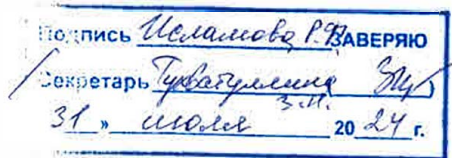 Подпись Исламова Р.Ф. ЗАВЕРЯЮ
Секретарь Тухватуллина
З.Н.
31 » июля 20 24 г.